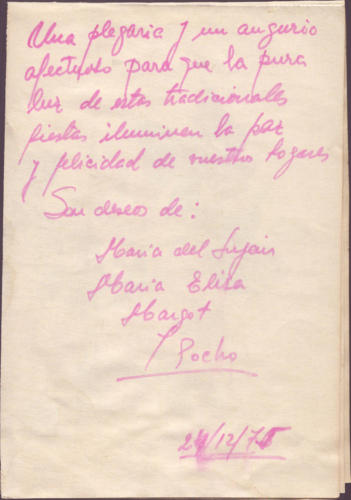 Una plegaria y un augurio
afectuoso para que la pura
luz de estas tradicionales
fiestas iluminen la paz
y felicidad de vuestros hogares
Son deseos de:
Maria del Luján
Maria Elisa
Margot
y Pocho
24/12/75